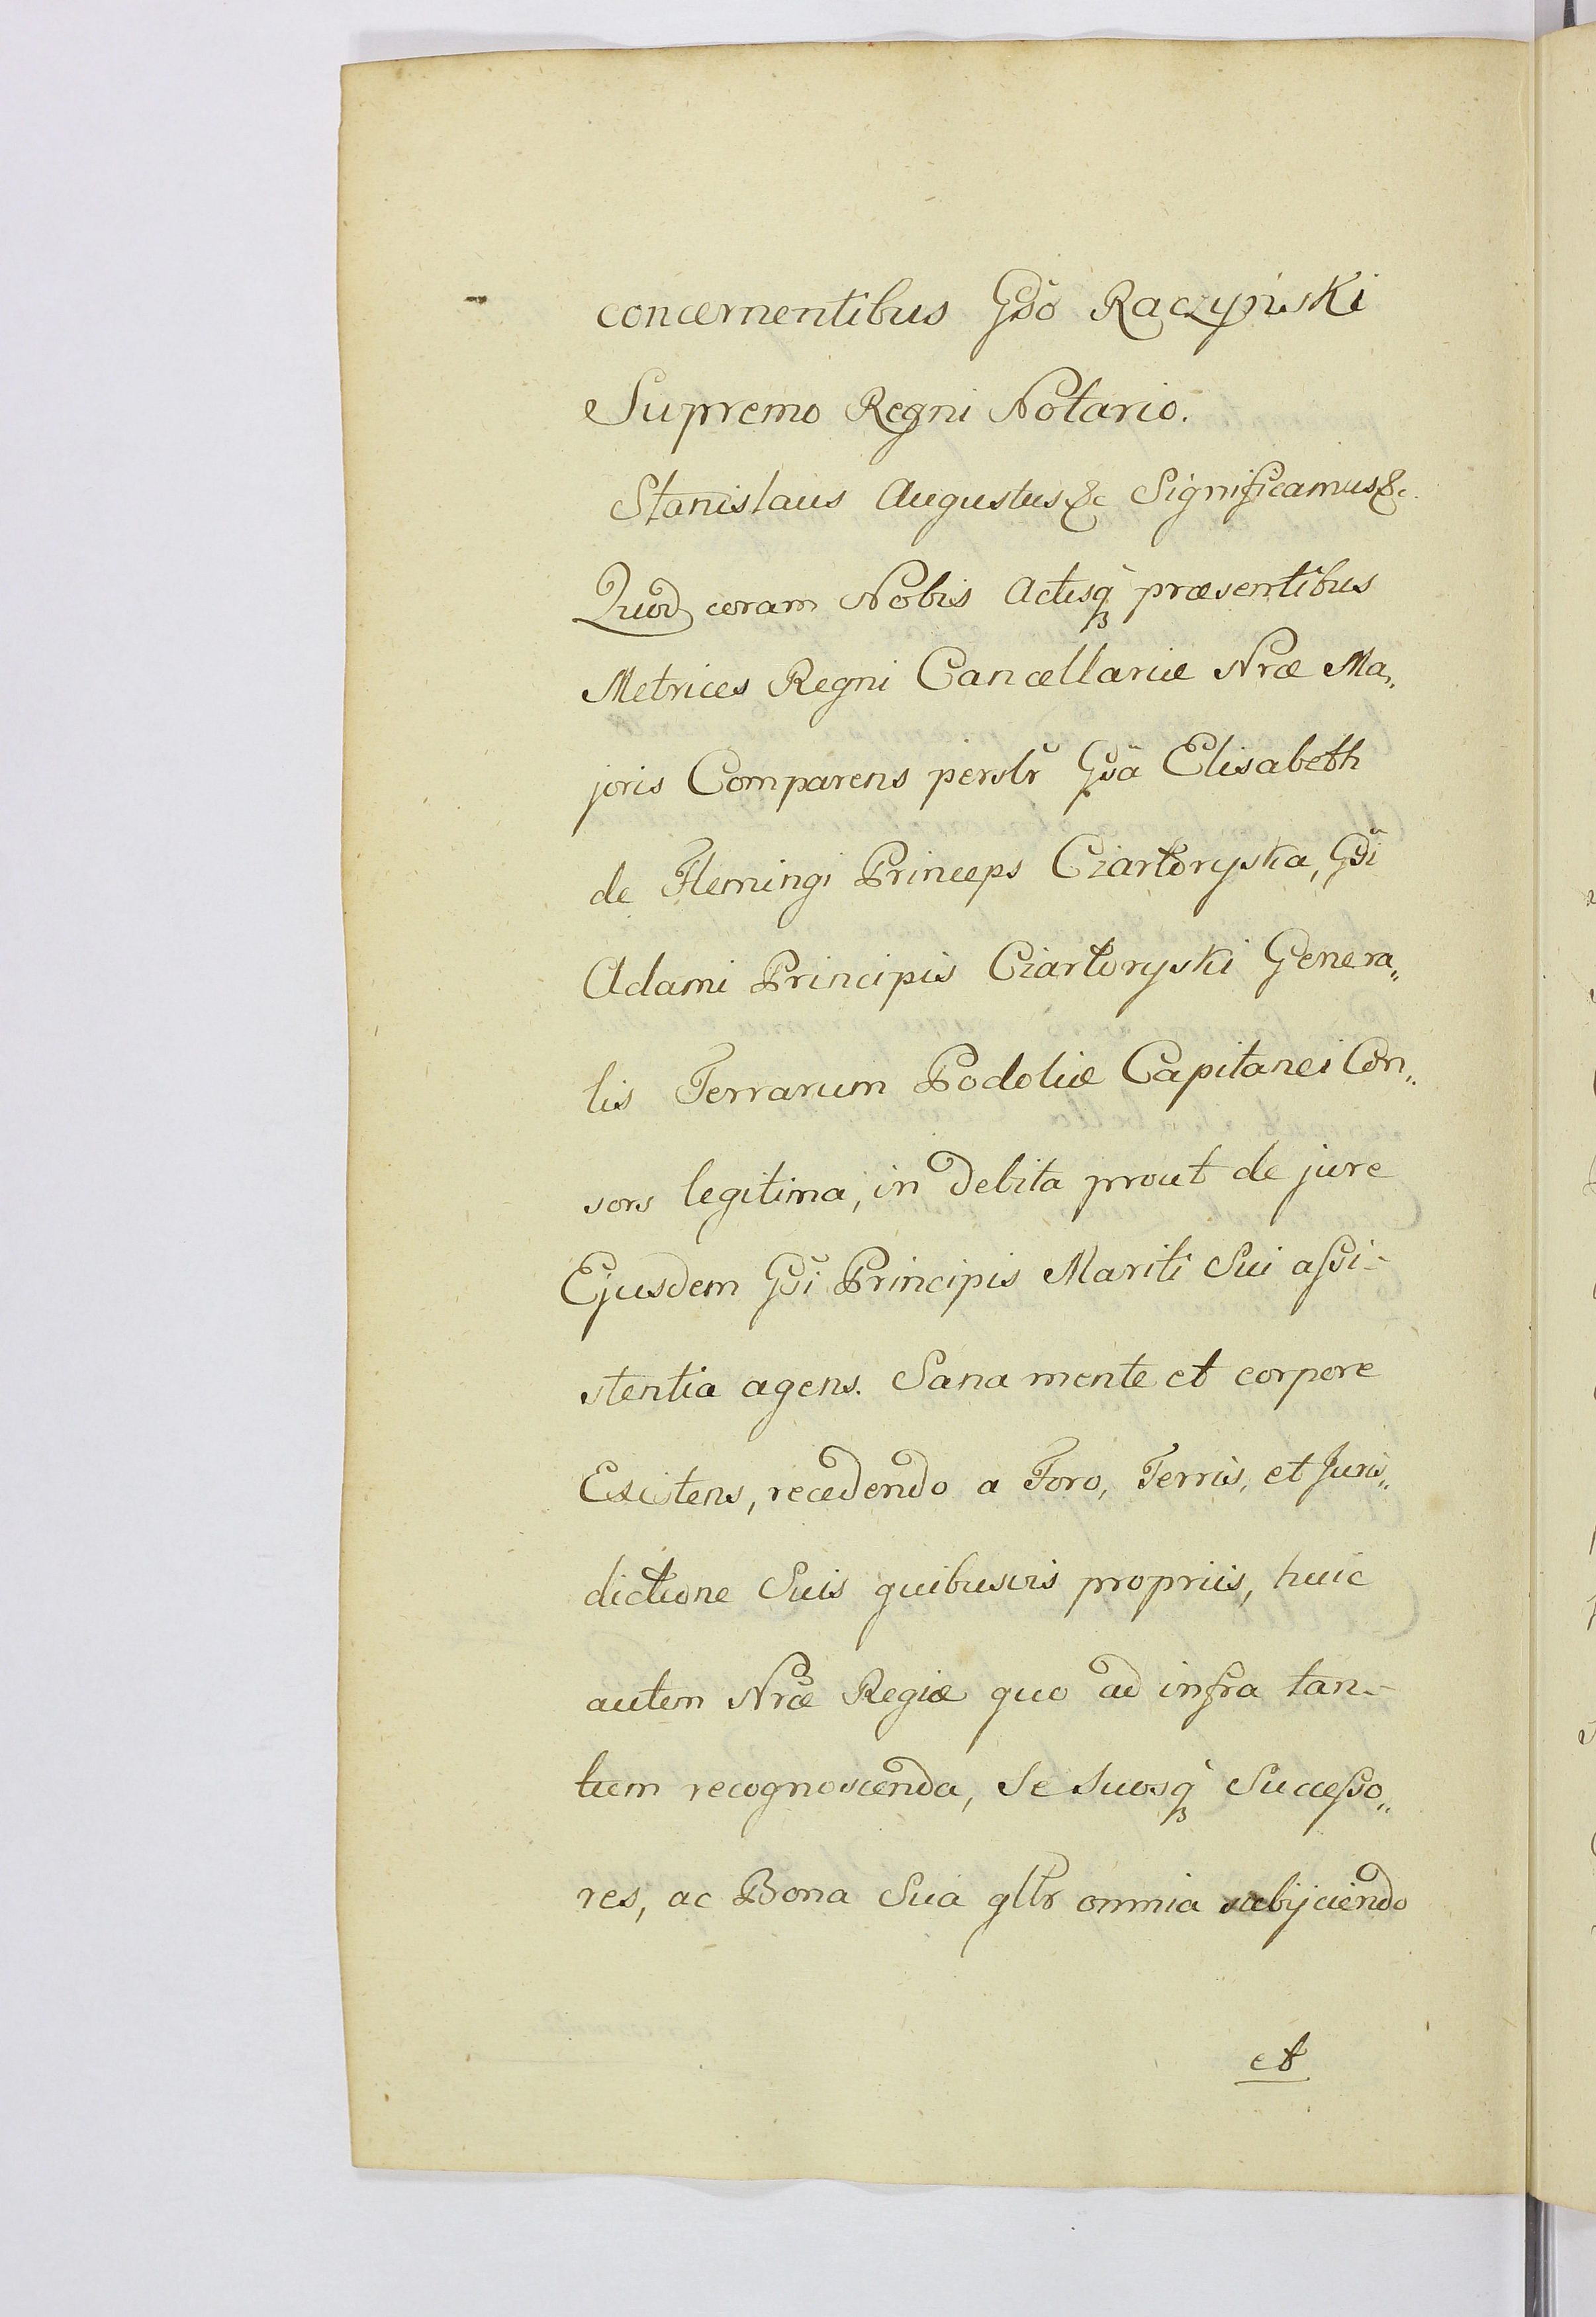 concernentibus Gso Raczyński
Supremo Regni Notario.
Stanislaus Augustus &c Significamus &c.
Quod coram Nobis Actisq præsentibus
Metrices Regni Cancellariæ Nræ Ma„
joris Comparens persłr Gsa Elisabeth
de Flemingi Princeps Czartoryska, Gsi
Adami Principis Czartoryski Genera„
lis Terrarum Podoliæ Capitanei Con„
sors legitima, in debita prout de jure
Ejusdem Gsi Principis Mariti Sui assi-
stentia agens. Sana mente et corpore
Existens, recedendo a Foro, Terris, et Juris„
dictione Suis quibusvis propriis, huic
autem Nræ Regiæ quo ad infra tan-
tum recognoscenda, Se Suosq Successo„
res, ac Bona Sua gllr omnia subjiciendo
et